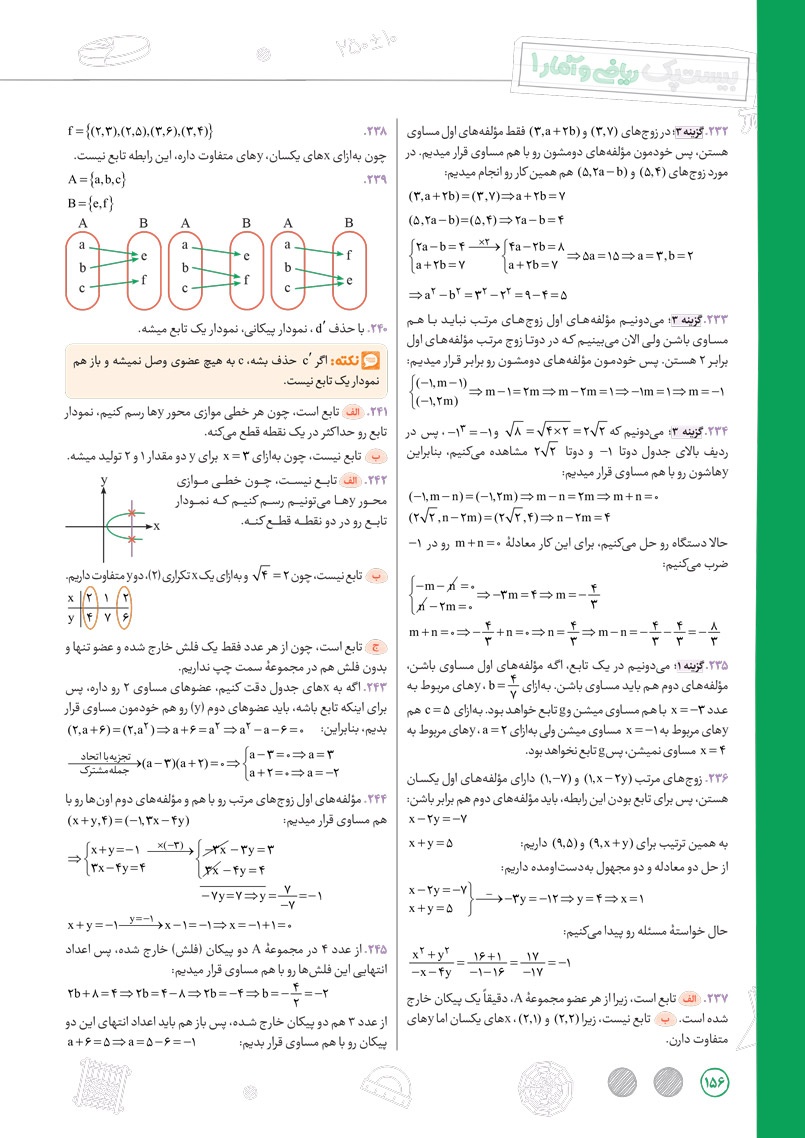 ۲۵۰±۱۰
بیست‌پک ریاضی و آمار ۱
۲۳۲. گزینه ۳؛ در زوج‌های (۳,۷) و (۳,a+۲b) فقط مؤلفه‌های اول مساوی
هستن، پس خودمون مؤلفه‌های دومشون رو با هم مساوی قرار میدیم. در
مورد زوج‌های (۵,۴) و (۵,۲a−b) هم همین کار رو انجام میدیم:
(۳,a+۲b)=(۳,۷)⇒a+۲b=۷
(۵,۲a−b)=(۵,۴)⇒۲a−b=۴
{۲a−b=۴ , a+۲b=۷ —×۲→ {۴a−۲b=۸ , a+۲b=۷ ⇒۵a=۱۵⇒a=۳,b=۲
⇒a²−b²=۳²−۲²=۹−۴=۵
۲۳۳. گزینه ۳؛ می‌دونیم مؤلفه‌های اول زوج‌های مرتب نباید با هم
مساوی باشن ولی الان می‌بینیم که در دوتا زوج مرتب مؤلفه‌های اول
برابر ۲ هستن. پس خودمون مؤلفه‌های دومشون رو برابر قرار میدیم:
{(−۱,m−۱) , (−۱,۲m) ⇒m−۱=۲m⇒m−۲m=۱⇒−۱m=۱⇒m=−۱
۲۳۴. گزینه ۳؛ می‌دونیم که √۸=√(۴×۲)=۲√۲ و −۱³=−۱، پس در
ردیف بالای جدول دوتا ۱− و دوتا ۲√۲ مشاهده می‌کنیم، بنابراین
yهاشون رو با هم مساوی قرار میدیم:
(−۱,m−n)=(−۱,۲m)⇒m−n=۲m⇒m+n=۰
(۲√۲,n−۲m)=(۲√۲,۴)⇒n−۲m=۴
حالا دستگاه رو حل می‌کنیم، برای این کار معادلهٔ m+n=۰ رو در ۱−
ضرب می‌کنیم:
{−m−n=۰ , n−۲m=۰ ⇒−۳m=۴⇒m=−۴/۳
m+n=۰⇒−۴/۳+n=۰⇒n=۴/۳⇒m−n=−۴/۳−۴/۳=−۸/۳
۲۳۵. گزینه ۱؛ می‌دونیم در یک تابع، اگه مؤلفه‌های اول مساوی باشن،
مؤلفه‌های دوم هم باید مساوی باشن. به‌ازای b=۴/۷، yهای مربوط به
عدد x=−۳ با هم مساوی میشن و g تابع خواهد بود. به‌ازای c=۵ هم
yهای مربوط به x=−۱ مساوی میشن ولی به‌ازای a=۲، yهای مربوط به
x=۴ مساوی نمیشن، پس g تابع نخواهد بود.
۲۳۶. زوج‌های مرتب (۱,x−۲y) و (۱,−۷) دارای مؤلفه‌های اول یکسان
هستن، پس برای تابع بودن این رابطه، باید مؤلفه‌های دوم هم برابر باشن:
x−۲y=−۷
به همین ترتیب برای (۹,x+y) و (۹,۵) داریم: x+y=۵
از حل دو معادله و دو مجهول به‌دست‌اومده داریم:
x−۲y=−۷ , x+y=۵} —−→ −۳y=−۱۲⇒y=۴⇒x=۱
حال خواستهٔ مسئله رو پیدا می‌کنیم:
(x²+y²)/(−x−۴y)=(۱۶+۱)/(−۱−۱۶)=۱۷/−۱۷=−۱
۲۳۷. الف تابع است، زیرا از هر عضو مجموعهٔ A، دقیقاً یک پیکان خارج
شده است. ب تابع نیست، زیرا (۲,۲) و (۲,۱)، xهای یکسان اما yهای
متفاوت دارن.
۲۳۸. f={(۲,۳),(۲,۵),(۳,۶),(۳,۴)}
چون به‌ازای xهای یکسان، yهای متفاوت داره، این رابطه تابع نیست.
۲۳۹. A={a,b,c}
B={e,f}
A B A B A B
a b c e f a b c e f a b c f e
۲۴۰. با حذف d′، نمودار پیکانی، نمودار یک تابع میشه.
نکته: اگر c′ حذف بشه، c به هیچ عضوی وصل نمیشه و باز هم
نمودار یک تابع نیست.
۲۴۱. الف تابع است، چون هر خطی موازی محور yها رسم کنیم، نمودار
تابع رو حداکثر در یک نقطه قطع می‌کنه.
ب تابع نیست، چون به‌ازای x=۳ برای y دو مقدار ۱ و ۲ تولید میشه.
۲۴۲. الف تابع نیست، چون خطی موازی
محور yها می‌تونیم رسم کنیم که نمودار
تابع رو در دو نقطه قطع کنه.
y
x
ب تابع نیست، چون √۴=۲ و به‌ازای یک x تکراری (۲)، دو y متفاوت داریم.
x ۲ ۱ ۲
y ۴ ۷ ۶
ج تابع است، چون از هر عدد فقط یک فلش خارج شده و عضو تنها و
بدون فلش هم در مجموعهٔ سمت چپ نداریم.
۲۴۳. اگه به xهای جدول دقت کنیم، عضوهای مساوی ۲ رو داره، پس
برای اینکه تابع باشه، باید عضوهای دوم (y) رو هم خودمون مساوی قرار
بدیم، بنابراین: (۲,a+۶)=(۲,a²)⇒a+۶=a²⇒a²−a−۶=۰
—تجزیه با اتحاد جمله مشترک→ (a−۳)(a+۲)=۰⇒{a−۳=۰⇒a=۳ , a+۲=۰⇒a=−۲
۲۴۴. مؤلفه‌های اول زوج‌های مرتب رو با هم و مؤلفه‌های دوم اون‌ها رو با
هم مساوی قرار میدیم: (x+y,۴)=(−۱,۳x−۴y)
⇒{x+y=−۱ , ۳x−۴y=۴ —×(−۳)→ {−۳x−۳y=۳ , ۳x−۴y=۴
−۷y=۷⇒y=۷/−۷=−۱
x+y=−۱ —y=−۱→ x−۱=−۱⇒x=−۱+۱=۰
۲۴۵. از عدد ۴ در مجموعهٔ A دو پیکان (فلش) خارج شده، پس اعداد
انتهایی این فلش‌ها رو با هم مساوی قرار میدیم:
۲b+۸=۴⇒۲b=۴−۸⇒۲b=−۴⇒b=−۴/۲=−۲
از عدد ۳ هم دو پیکان خارج شده، پس باز هم باید اعداد انتهای این دو
پیکان رو با هم مساوی قرار بدیم: a+۶=۵⇒a=۵−۶=−۱
۱۵۶